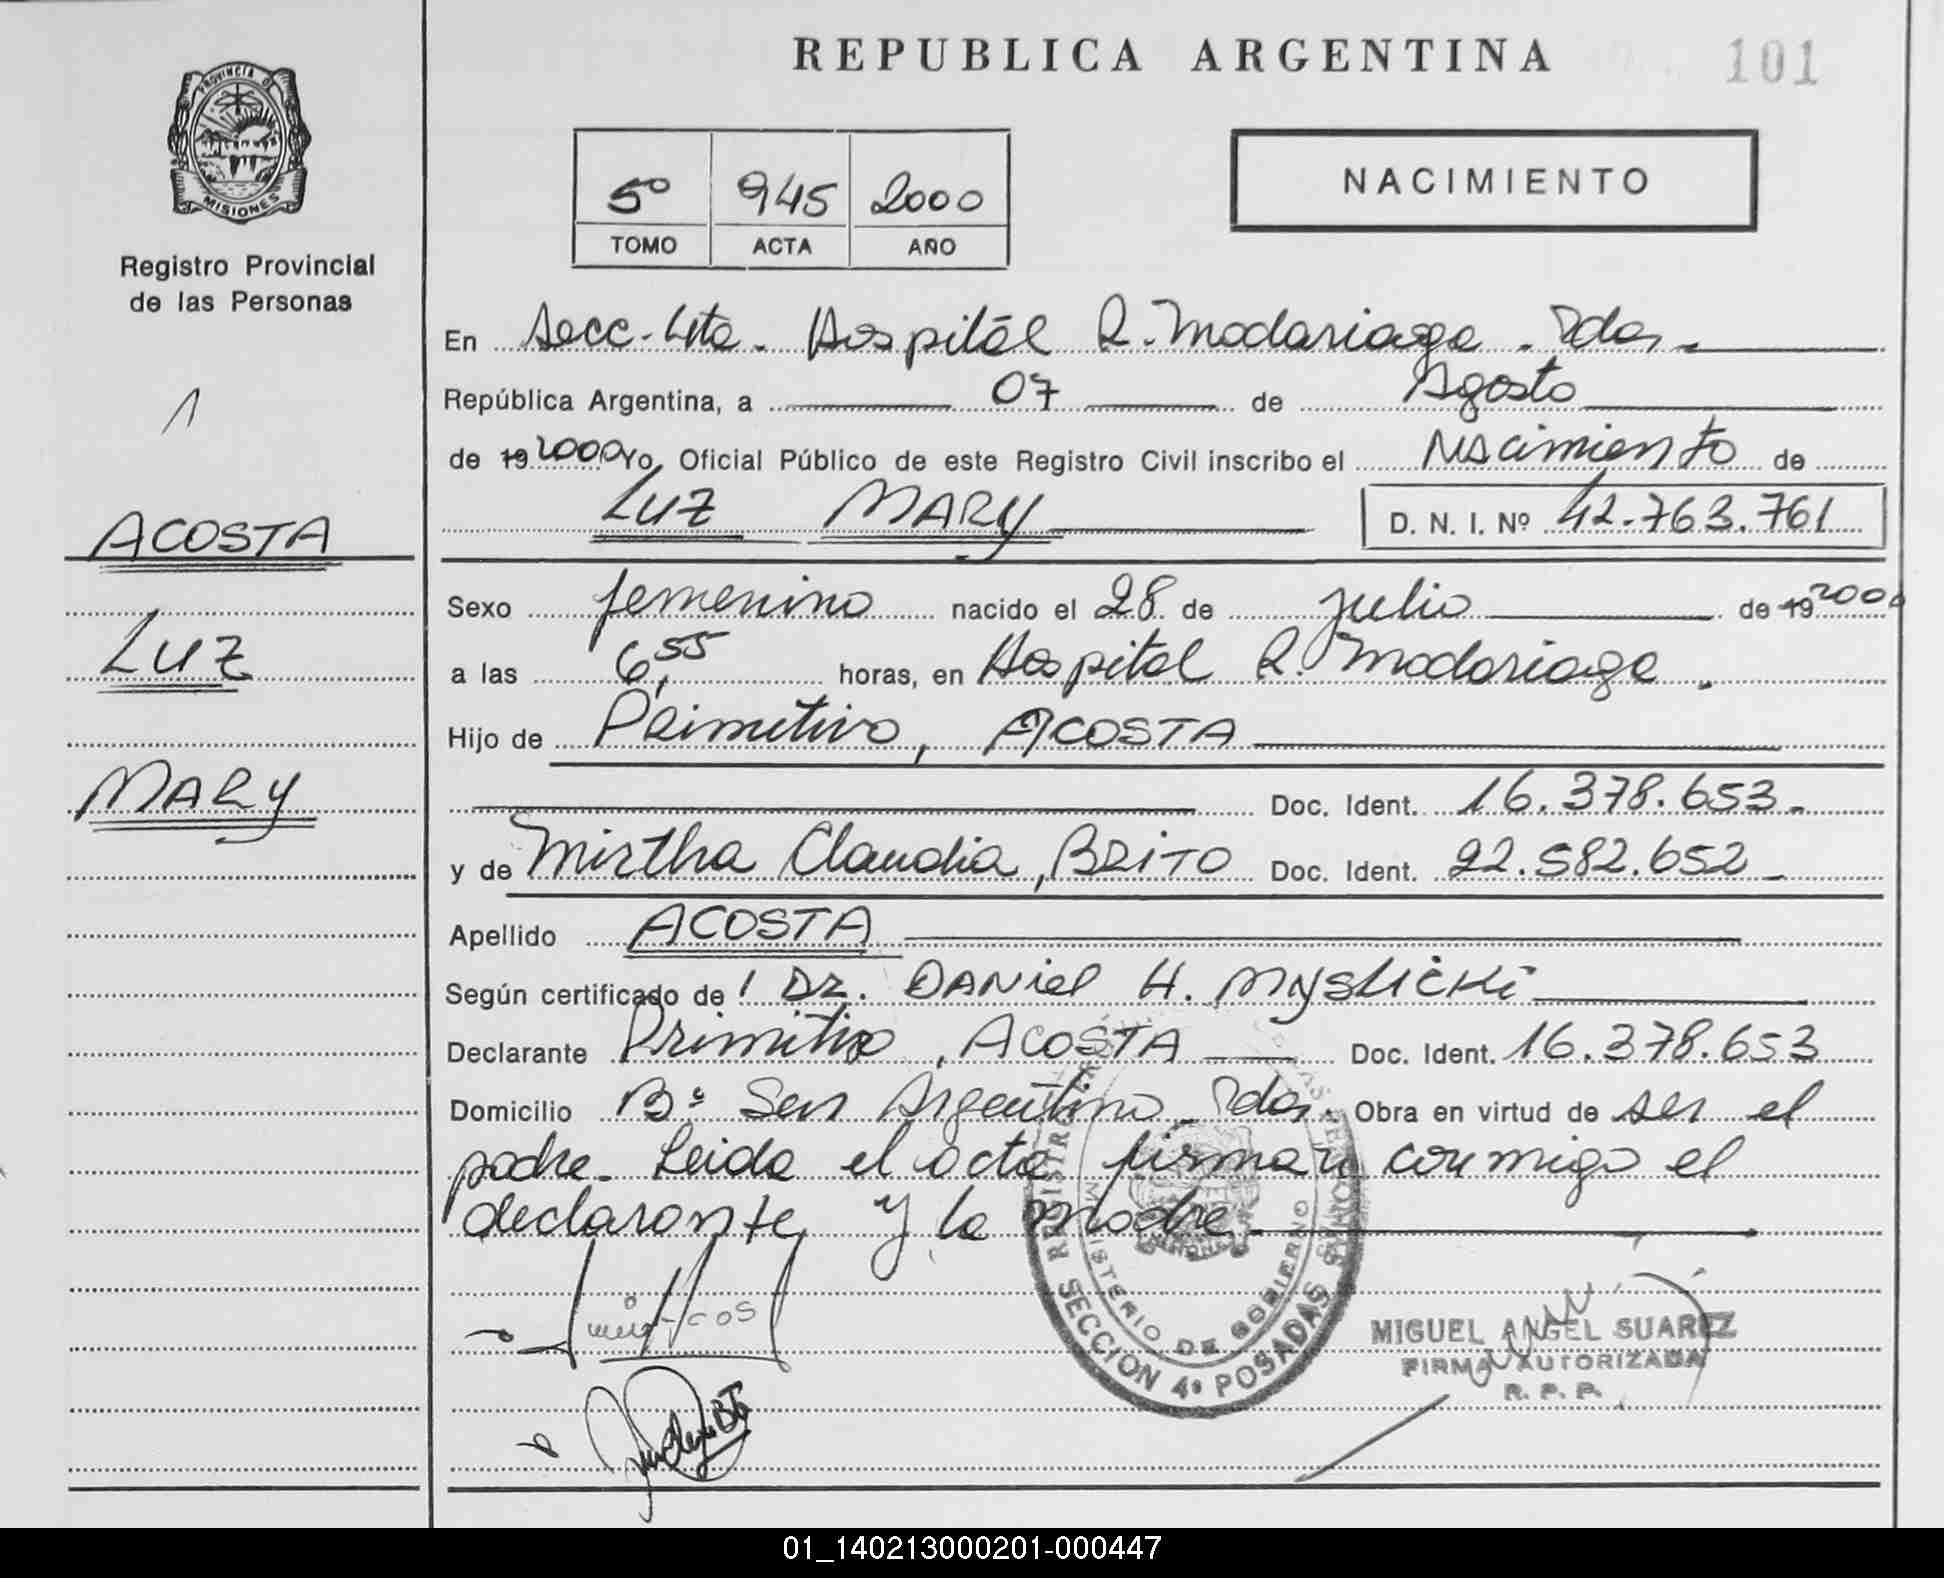 REPUBLICA ARGENTINA
101
PROVINCIA DE
MISIONES
Registro Provincial
de las Personas
5º 945 2000
TOMO ACTA AÑO
NACIMIENTO
En Secc. 4ta. Hospital R. Madariaga. Pdas.
República Argentina, a 07 de Agosto
de 19 2000 Yo, Oficial Público de este Registro Civil inscribo el Nacimiento de
LUZ MARY D. N. I. Nº 42.763.761
ACOSTA
LUZ
MARY
Sexo femenino nacido el 28 de julio de 19 2000
a las 6,55 horas, en Hospital R. Madariaga.
Hijo de Primitivo, ACOSTA
Doc. Ident. 16.378.653.
y de Mirtha Claudia, BRITO Doc. Ident. 22.582.652
Apellido ACOSTA
Según certificado de Dr. DANIEL H. MYSLICKI
Declarante Primitivo, ACOSTA Doc. Ident. 16.378.653
Domicilio Bº Sesq Argentino Pdas. Obra en virtud de ser el
padre. Leida el acta firman conmigo el
declarante y la madre
MINISTERIO DE GOBIERNO
SECCION 4ª POSADAS
MIGUEL ANGEL SUAREZ
FIRMA AUTORIZADA
R. P. P.
01_140213000201-000447